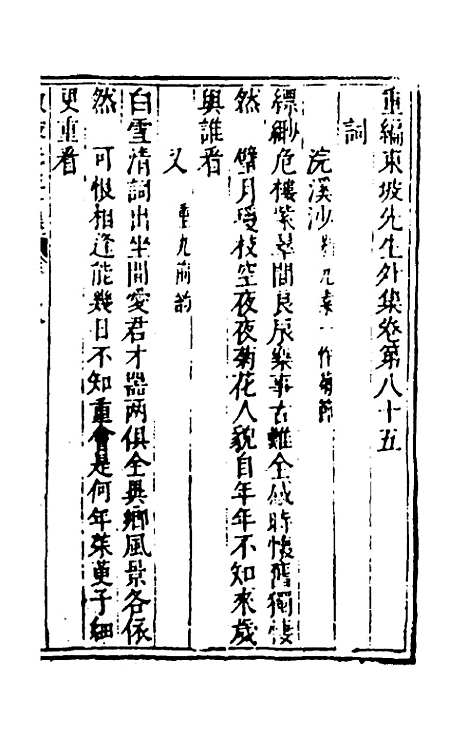 重編東坡先生外集卷第八十五
詞
浣溪沙 一作菊節
縹緲危樓紫翠間良辰樂事古難全感時懷舊獨悽
然 璧月瓊枝空夜夜菊花人貌自年年不知來歲
與誰看
又 重九前韵
白雪清詞出坐間愛君才器兩俱全異鄉風景各依
然 可恨相逢能幾日不知重會是何年茱萸子細
更重看